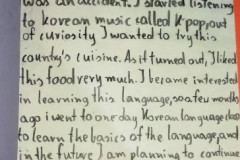 was an accident. I started listening
to korean music called K-pop, out
of curiosity I wanted to try this
country's cuisine. As it turned out, I liked
this food very much. I became interested
in learning this language, so a few months
ago i went to one day Korean language class
to learn the basics of the language, and
in the future I am planning to continue